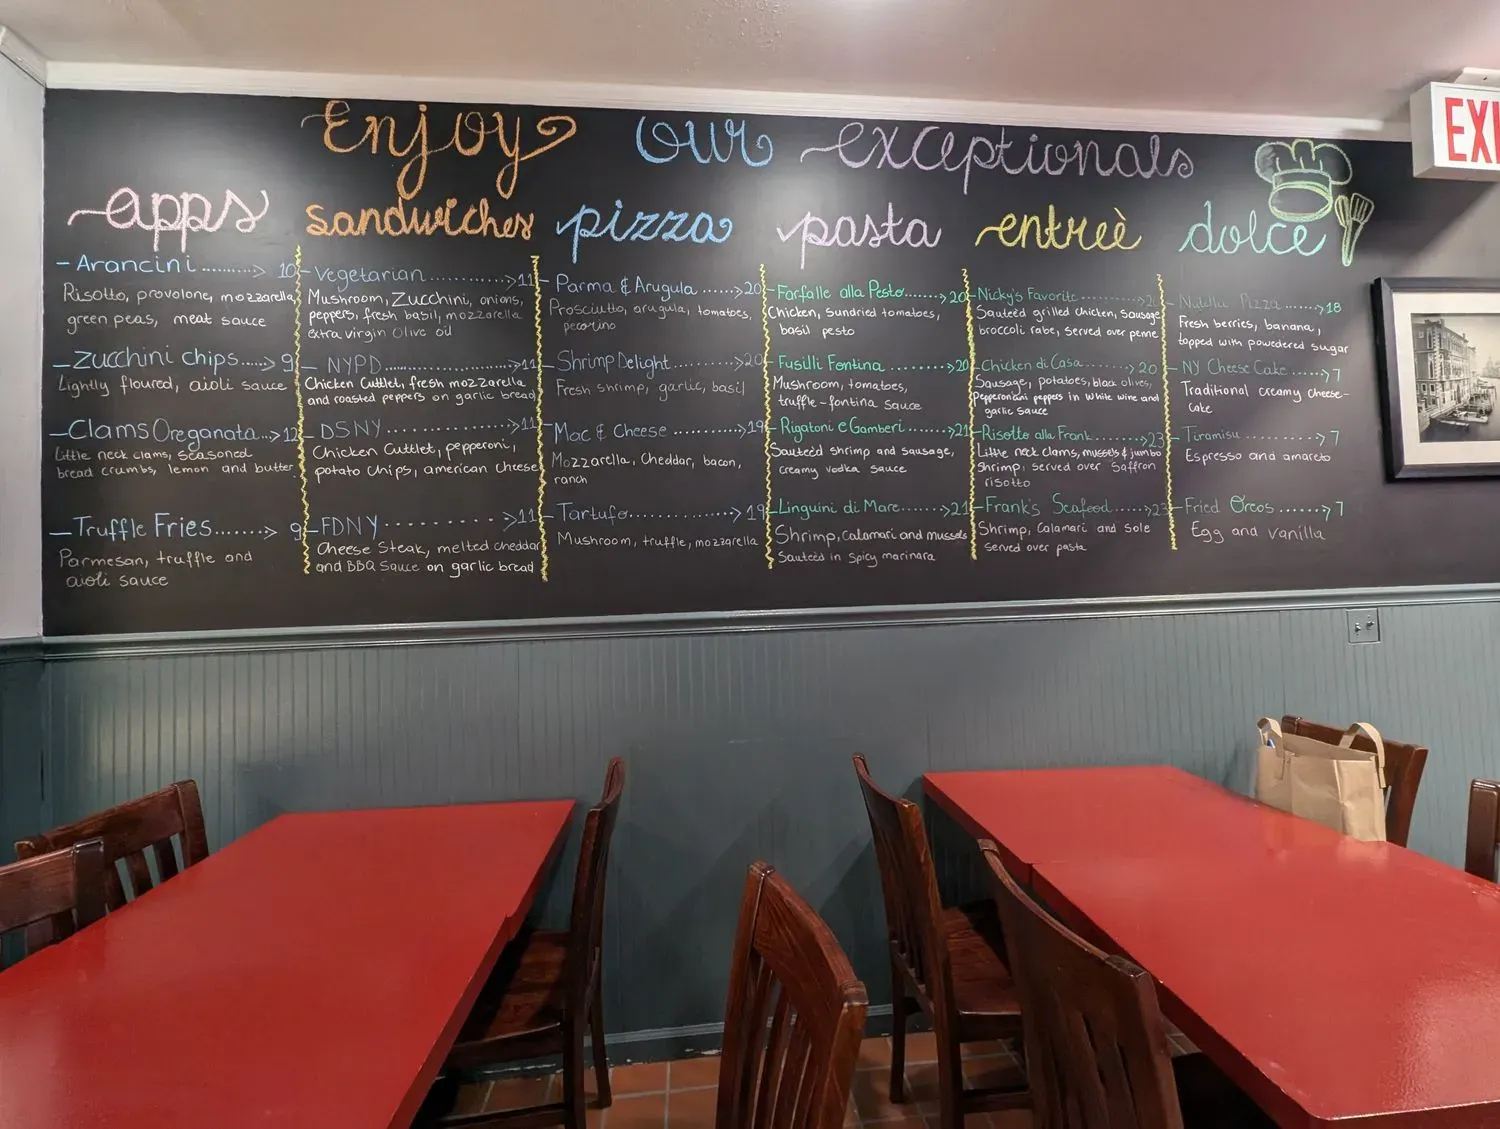 Enjoy our exceptionals
EXI
apps
Arancini 10
Risotto, provolone, mozzarella,
green peas, meat sauce
Zucchini Chips 9
Lightly floured, aioli sauce
Clams Oreganata 12
Little neck clams, seasoned
bread crumbs, lemon and butter
Truffle Fries 9
Parmesan, truffle and
aioli sauce
sandwiches
Vegetarian 11
Mushroom, Zucchini, onions,
peppers, fresh basil, mozzarella
extra virgin olive oil
NYPD 11
Chicken Cuttlet, fresh mozzarella
and roasted peppers on garlic bread
DSNY 11
Chicken Cuttlet, pepperoni,
potato chips, american cheese
FDNY 11
Cheese Steak, melted cheddar
and BBQ Sauce on garlic bread
pizza
Parma & Arugula 20
Prosciutto, arugula, tomatoes,
pecorino
Shrimp Delight 20
Fresh shrimp, garlic, basil
Mac & Cheese 19
Mozzarella, Cheddar, bacon,
ranch
Tartufo 19
Mushroom, truffle, mozzarella
pasta
Farfalle alla Pesto 20
Chicken, sundried tomatoes,
basil pesto
Fusilli Fontina 20
Mushroom, tomatoes,
truffle-fontina sauce
Rigatoni e Gamberi 21
Sauteèd shrimp and sausage,
creamy vodka sauce
Linguini di Mare 21
Shrimp, calamari and mussels
Sauteèd in spicy marinara
entreè
Nicky's Favorite 20
Sauteèd grilled chicken, sausage
broccoli rabe, served over penne
Chicken di Casa 20
Sausage, potatoes, black olives,
Pepperonani peppers in white wine and
garlic sauce
Risotto alla Frank 23
Little neck clams, mussels & jumbo
shrimp, served over saffron
risotto
Frank's Seafood 23
Shrimp, Calamari and sole
served over pasta
dolce
Nutella Pizza 18
Fresh berries, banana,
topped with powedered sugar
NY Cheese Cake 7
Traditional creamy cheese-
cake
Tiramisu 7
Espresso and amareto
Fried Oreos 7
Egg and vanilla